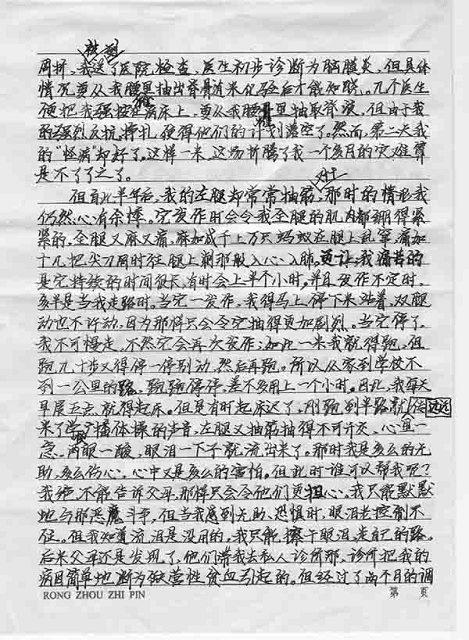 被送
周折，我送了医院检查，医生初步诊断为脑膜炎，但具体
情况要从我腰里抽出脊骨液来化验后才能知晓。几个医生
便把我强按在病床上，要从我腰脊里抽取脊液，但由于我
的强烈反抗、挣扎，使得他们的计划落空了。然而，第二天我
的"怪病"却好了。这样一来，这场折腾了我一个多月的灾难算
是不了了之了。
但自此半年后，我的左腿却常常抽筋，那时的情形我
仍然心有余悸。它发作时会令我歪腿的肌肉都绷得紧
紧的，歪腿又麻又痛，麻如成千上万只蚂蚁在腿上乱窜，痛如
十几把尖刀同时往腿上刺那般入心、入肺。更让我痛苦的
是它持续的时间很长，有时会上半个小时。并且发作不定时，
多半是当我走路时。当它一发作，我得马上停下来站着，双腿
动也不许动，因为那样只会令它抽得更加剧烈。当它停了，
我不可慢走，不然它会再次发作；如此一来我就得跑。但
跑几十步又得停一停别动，然后再跑。所以从家到学校不
到一公里的路，跑跑停停，差不多用上一个小时。因此，我每天
早晨五点就得起床。但是有时起床迟了，刚跑到半路就
远远
来了学校播体操的声音，左腿又抽筋抽得不可开交，心宜一
急，两眼一酸，眼泪一下子就流出来了。那时我是多么的无
助，多么伤心，心中又是多么的害怕。但此时谁可以帮我呢？
我绝不能告诉父母，那样只会令他们更担心。我只能默默
地与那恶魔斗争，但当我感到无助、恐惧时，眼泪老控制不
住。但我知道流泪是没用的，我只能擦干眼泪走自己的路。
后来父母还是发现了，他们带我去私人诊所那，诊所把我的
病因简单地断为缺营性贫血引起的。但经过了两个月的调
RONG ZHOU ZHI PIN
第 页